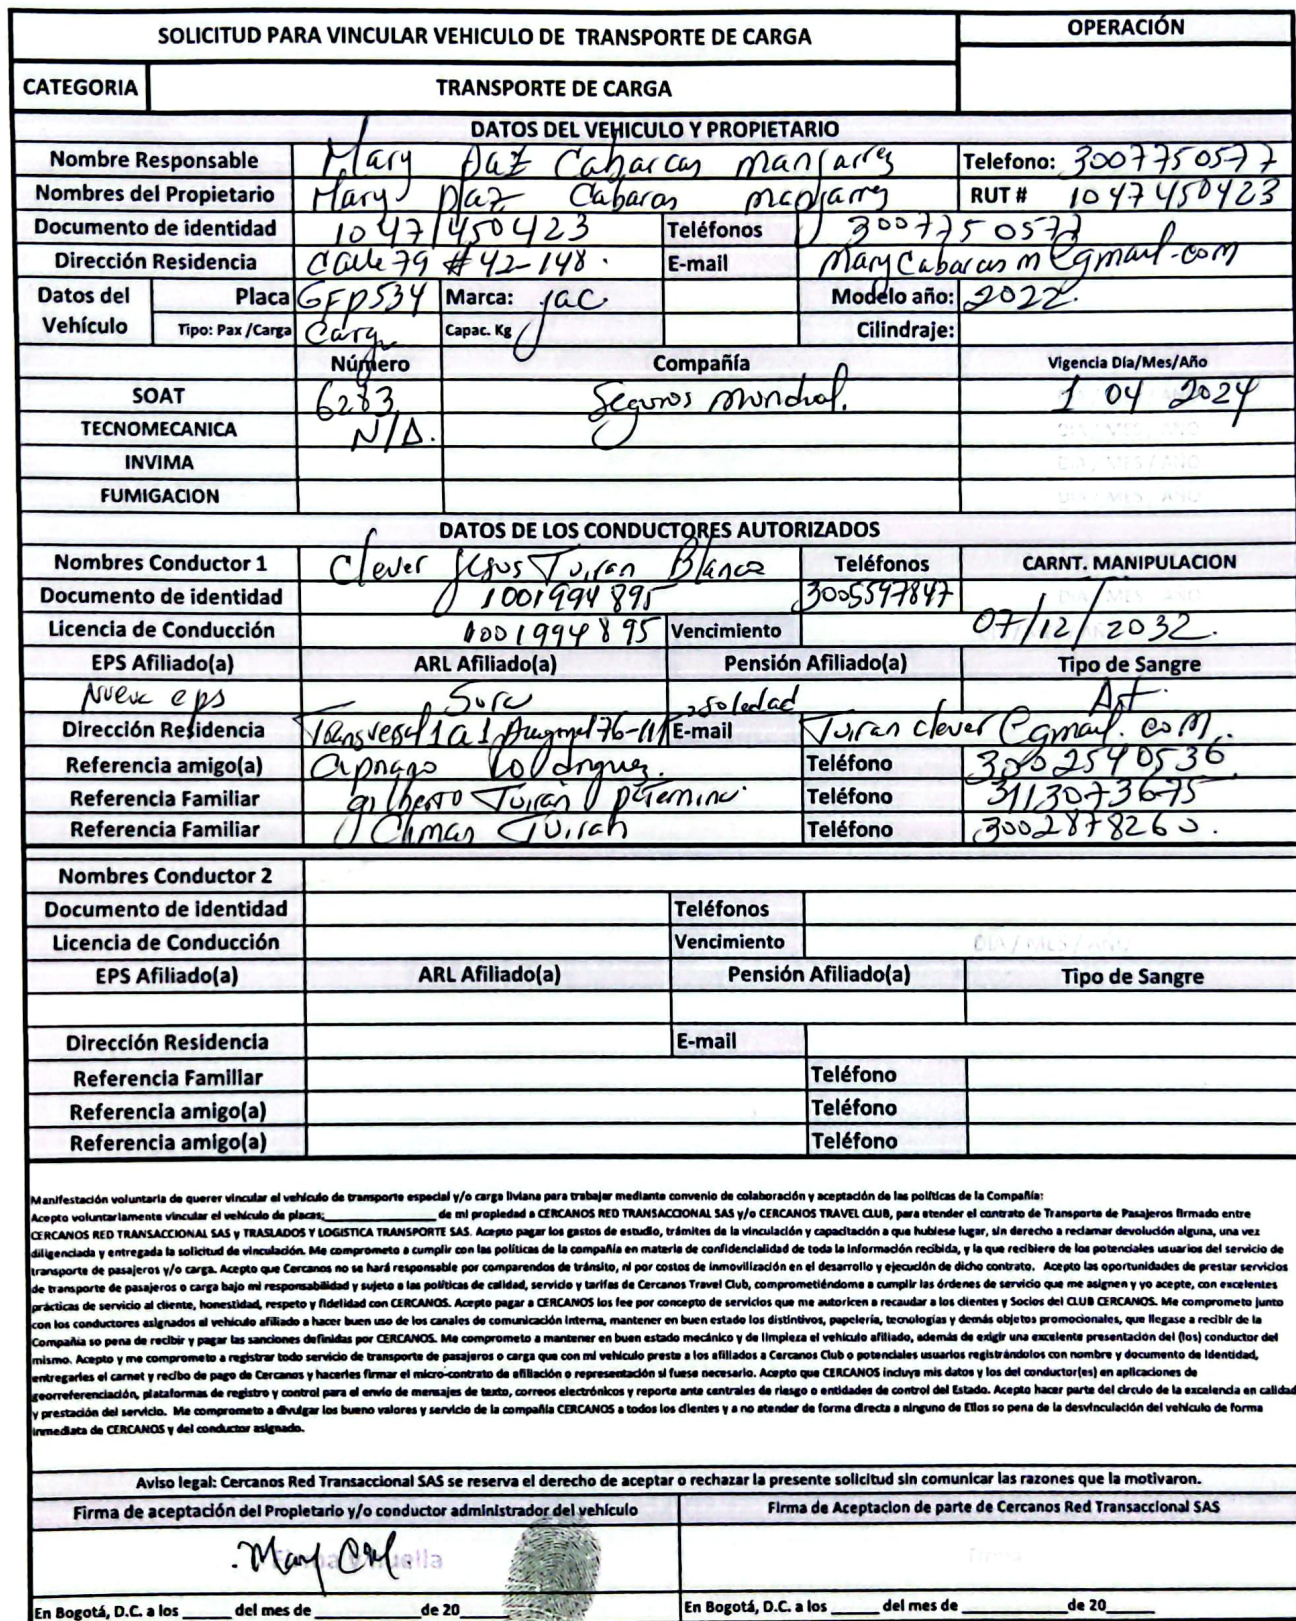 SOLICITUD PARA VINCULAR VEHICULO DE TRANSPORTE DE CARGA OPERACIÓN
CATEGORIA TRANSPORTE DE CARGA
DATOS DEL VEHICULO Y PROPIETARIO
Nombre Responsable Mary paz Cabarcas manjarrez Telefono: 3007750577
Nombres del Propietario Mary paz Cabarcas manjarrez RUT # 1047450423
Documento de identidad 1047450423 Teléfonos 3007750577
Dirección Residencia Calle 79 # 42-148. E-mail MaryCabarcas m@gmail.com
Datos del Vehículo Placa GFP534 Marca: jac Modelo año: 2022.
Tipo: Pax /Carga Carga Capac. Kg Cilindraje:
Número Compañía Vigencia Dia/Mes/Año
SOAT 6283 Seguros mundial. 1 04 2024
TECNOMECANICA N/A. DIA / MES / AÑO
INVIMA DIA / MES / AÑO
FUMIGACION DIA / MES / AÑO
DATOS DE LOS CONDUCTORES AUTORIZADOS
Nombres Conductor 1 Clever Jesus Turan Blanco Teléfonos CARNT. MANIPULACION
Documento de identidad 1001994895 3005597847 DIA / MES / AÑO
Licencia de Conducción 1001994895 Vencimiento 07/12/2032.
EPS Afiliado(a) ARL Afiliado(a) Pensión Afiliado(a) Tipo de Sangre
Nueva eps Sura soledad A+
Dirección Residencia Transversal 1a1 76-111 E-mail Turan clever @gmail.com.
Referencia amigo(a) Rodriguez. Teléfono 3002540536
Referencia Familiar gilberto Turan Teléfono 3113073675
Referencia Familiar Turan Teléfono 3002878260.
Nombres Conductor 2
Documento de identidad Teléfonos
Licencia de Conducción Vencimiento DIA / MES / AÑO
EPS Afiliado(a) ARL Afiliado(a) Pensión Afiliado(a) Tipo de Sangre
Dirección Residencia E-mail
Referencia Familiar Teléfono
Referencia amigo(a) Teléfono
Referencia amigo(a) Teléfono
Manifestación voluntaria de querer vincular el vehículo de transporte especial y/o carga liviana para trabajar mediante convenio de colaboración y aceptación de las políticas de la Compañía:
Acepto voluntariamente vincular el vehículo de placas:_______________ de mi propiedad a CERCANOS RED TRANSACCIONAL SAS y/o CERCANOS TRAVEL CLUB, para atender el contrato de Transporte de Pasajeros firmado entre
CERCANOS RED TRANSACCIONAL SAS y TRASLADOS Y LOGISTICA TRANSPORTE SAS. Acepto pagar los gastos de estudio, trámites de la vinculación y capacitación a que hubiese lugar, sin derecho a reclamar devolución alguna, una vez
diligenciada y entregada la solicitud de vinculación. Me comprometo a cumplir con las políticas de la compañía en materia de confidencialidad de toda la información recibida, y la que recibiere de los potenciales usuarios del servicio de
transporte de pasajeros y/o carga. Acepto que Cercanos no se hará responsable por comparendos de tránsito, ni por costos de inmovilización en el desarrollo y ejecución de dicho contrato. Acepto las oportunidades de prestar servicios
de transporte de pasajeros o carga bajo mi responsabilidad y sujeto a las políticas de calidad, servicio y tarifas de Cercanos Travel Club, comprometiéndome a cumplir las órdenes de servicio que me asignen y yo acepte, con excelentes
prácticas de servicio al cliente, honestidad, respeto y fidelidad con CERCANOS. Acepto pagar a CERCANOS los fee por concepto de servicios que me autoricen a recaudar a los clientes y Socios del CLUB CERCANOS. Me comprometo junto
con los conductores asignados al vehículo afiliado a hacer buen uso de los canales de comunicación interna, mantener en buen estado los distintivos, papelería, tecnologías y demás objetos promocionales, que llegase a recibir de la
Compañía so pena de recibir y pagar las sanciones definidas por CERCANOS. Me comprometo a mantener en buen estado mecánico y de limpieza el vehículo afiliado, además de exigir una excelente presentación del (los) conductor del
mismo. Acepto y me comprometo a registrar todo servicio de transporte de pasajeros o carga que con mi vehículo preste a los afiliados a Cercanos Club o potenciales usuarios registrándolos con nombre y documento de Identidad,
entregarles el carnet y recibo de pago de Cercanos y hacerles firmar el micro-contrato de afiliación o representación si fuese necesario. Acepto que CERCANOS incluya mis datos y los del conductor(es) en aplicaciones de
georreferenciación, plataformas de registro y control para el envío de mensajes de texto, correos electrónicos y reporte ante centrales de riesgo o entidades de control del Estado. Acepto hacer parte del circulo de la excelencia en calidad
y prestación del servicio. Me comprometo a divulgar los bueno valores y servicio de la compañía CERCANOS a todos los clientes y a no atender de forma directa a ninguno de Ellos so pena de la desvinculación del vehículo de forma
inmediata de CERCANOS y del conductor asignado.
Aviso legal: Cercanos Red Transaccional SAS se reserva el derecho de aceptar o rechazar la presente solicitud sin comunicar las razones que la motivaron.
Firma de aceptación del Propietario y/o conductor administrador del vehículo Firma de Aceptacion de parte de Cercanos Red Transaccional SAS
Firma y Huella Firma
En Bogotá, D.C. a los _____ del mes de ________ de 20____ En Bogotá, D.C. a los _____ del mes de ___________ de 20____